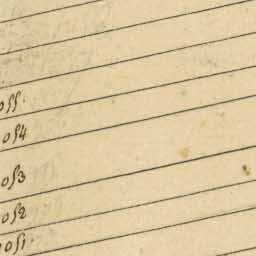 055.
054
053
052
051.